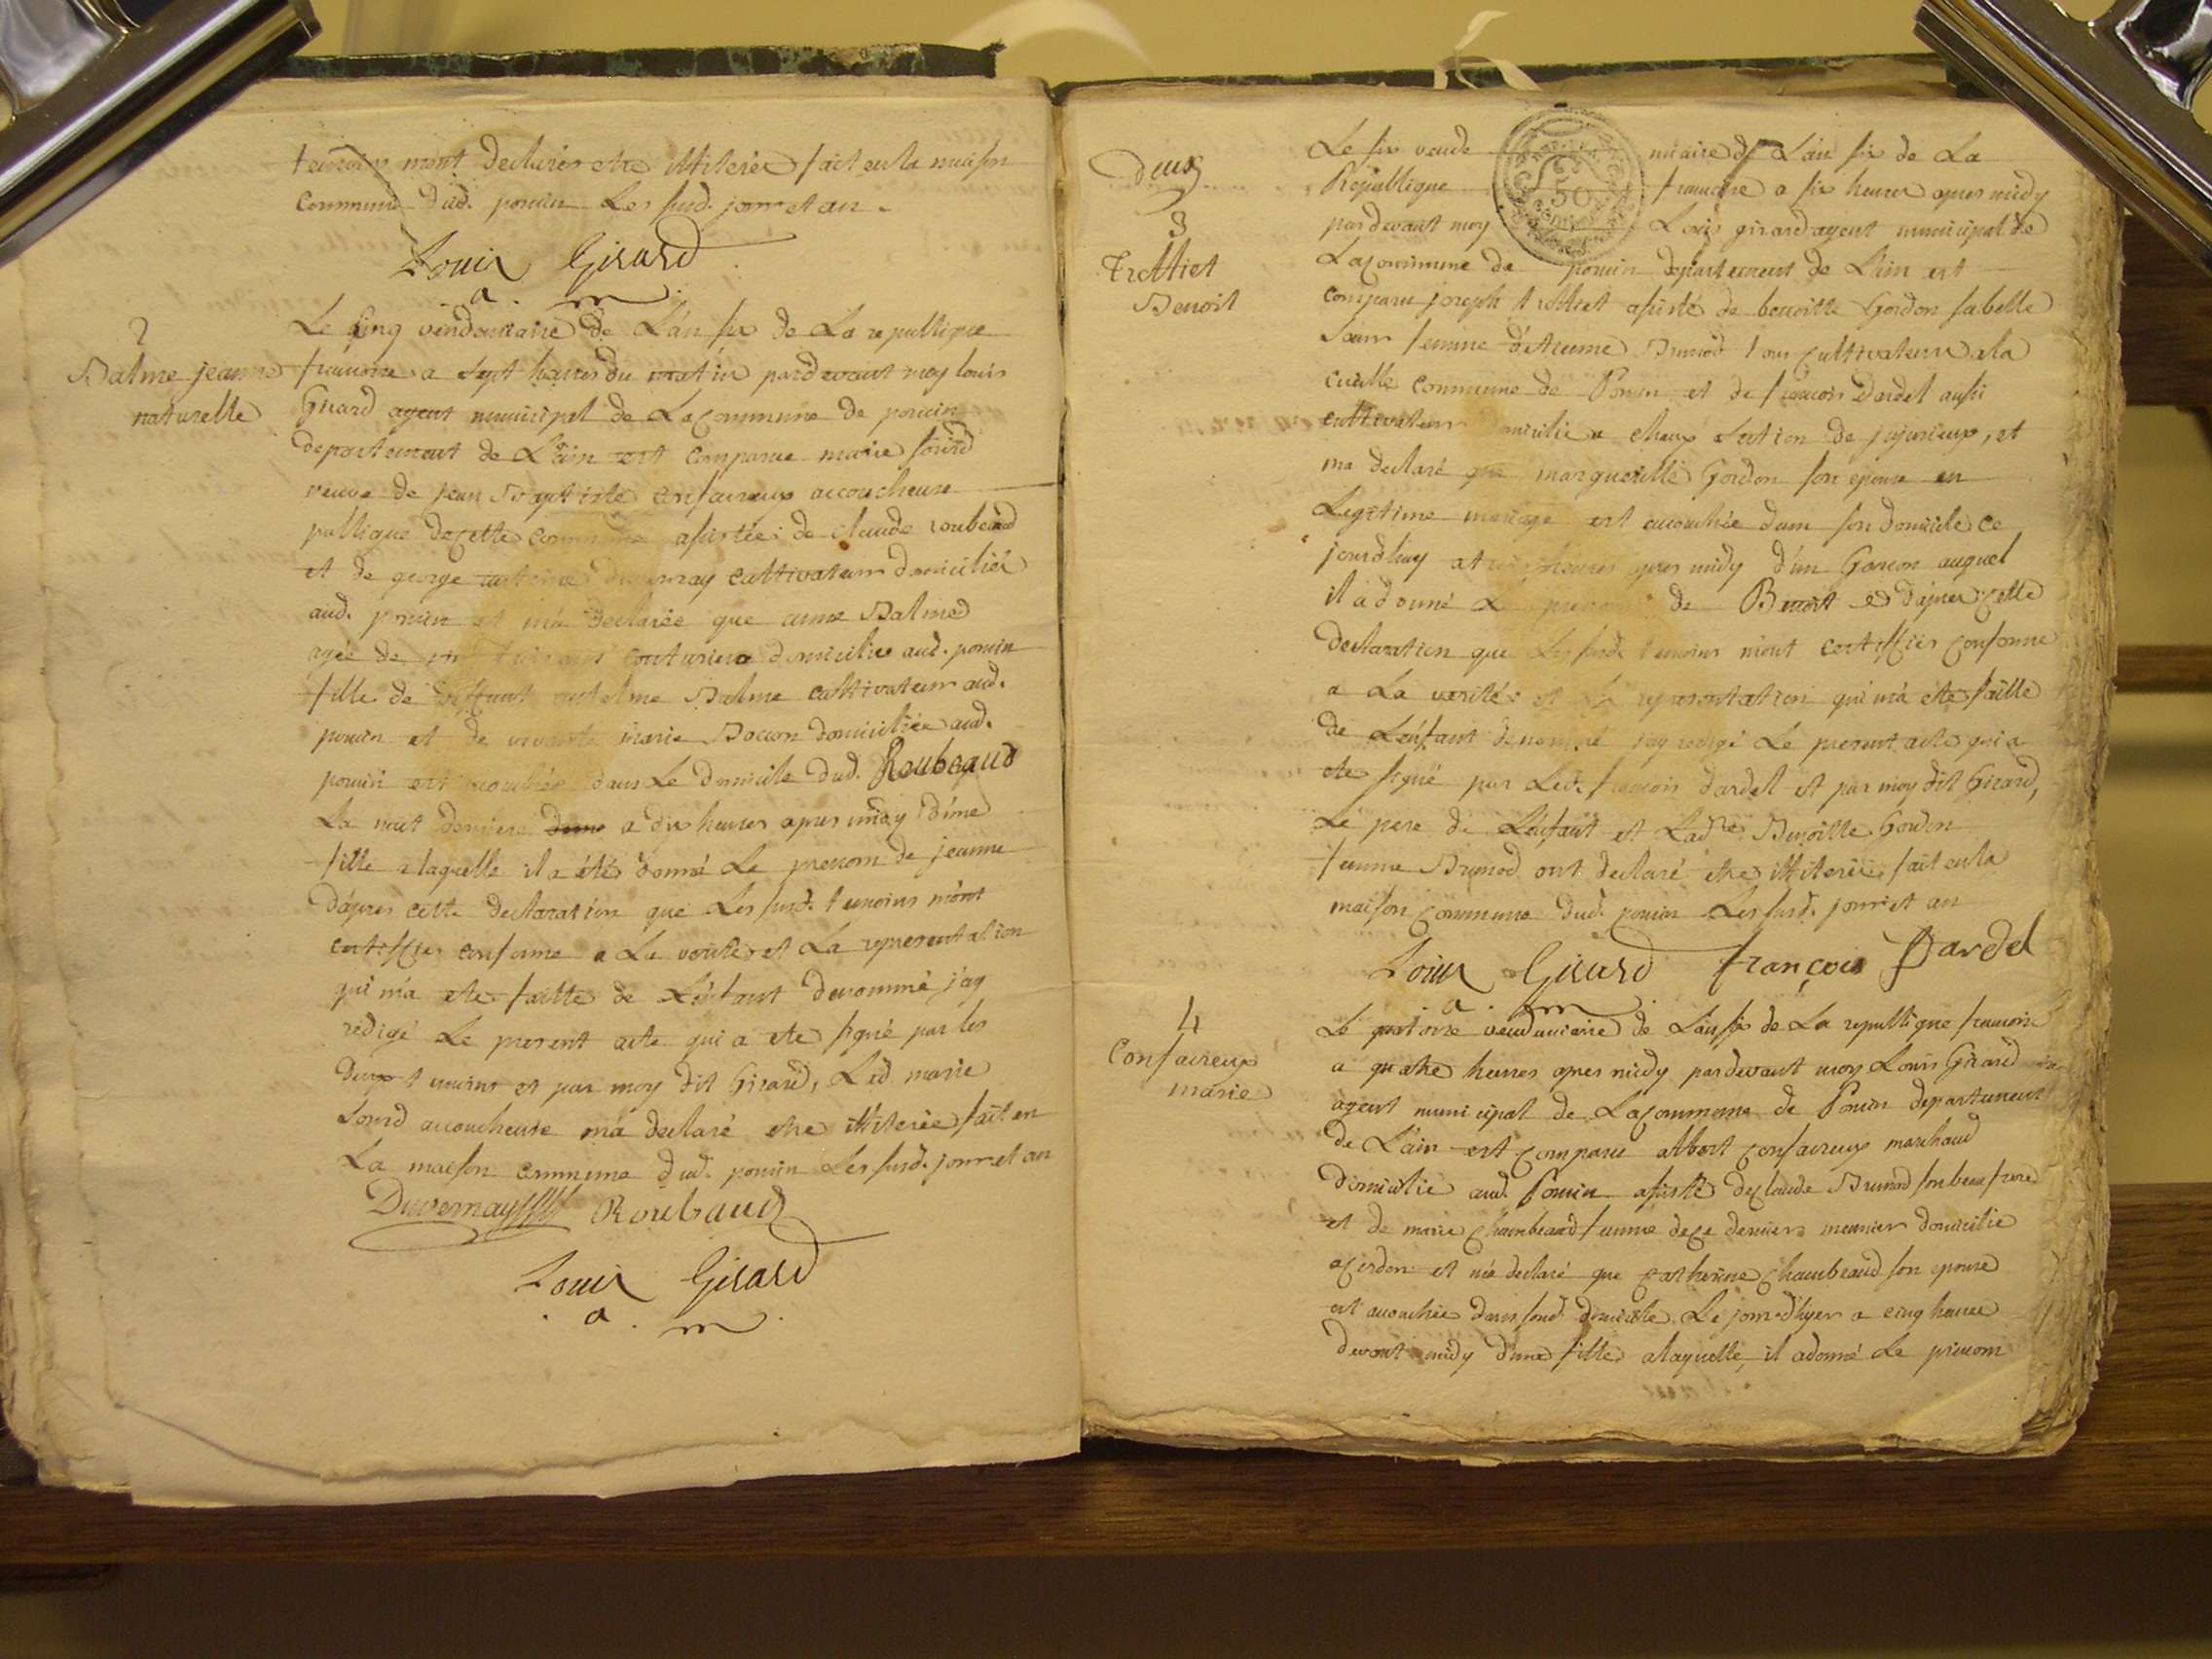 temoins m'ont declarés etre illiterés fait en la maison
commune dud. poncin Les susd. jour et an.
Louis Girard
a. m.
2
Balme jeanne
naturelle
Le cinq vendemiaire de L'an six de La republique
francoise a sept heures du matin pardevant moy louis
Girard agent municipal de La commune de poncin
departement de L'ain est comparue marie sourd
veuve de jean Baptiste confavreux accoucheuse
publique de cette commune assistée de claude roubeaud
et de george antoine duvernay cultivateurs domiciliés
aud. poncin et m'a declarée que anne Balme
agée de couturiere domiciliee aud. poncin
fille de deffunt antelme Balme cultivateur aud.
poncin et de vivante marie Bocon domiciliée aud.
poncin est accouchée dans Le domicile dud. Roubeaud
La nuit derniere a dix heures apres midy d'une
fille a laquelle il a été donné Le prenom de jeanne
d'apres cette declaration que Les susd. temoins m'ont
certiffiés conforme a La verité et La representation
qui m'a ete faitte de L'enfant denommé j'ay
redigé Le present acte qui a ete signé par les
deux temoins et par moy dit Girard, Lad marie
sourd accoucheuse m'a declaré etre illiterée fait en
La maison commune dud. poncin Les susd. jour et an
Duvernay Roubaud
Louis Girard
a. m.
Deux
3
Trolliet
Benoit
Le six vende miaire de L'an six de La
Republique francoise a six heures apres midy
pardevant moy Louis girard agent municipal de
La commune de poncin departement de L'ain est
comparu joseph trolliet assisté de benoitte Gordon sa belle
soeur femme d'etienne Brunod tous cultivateurs a la
cueille commune de Poncin et de francois Dardel aussi
cultivateur domicilié a chaux section de jujurieux, et
m'a declaré que margueritte Gordon son epouse en
Legitime mariage est accouchée dans son domicile ce
jourd'huy a heures apres midy d'un Garcon auquel
il a donné Le prenom de Benoit d'apres cette
declaration que Les susd. temoins m'ont certiffiés conforme
a La verité et La representation qui m'a ete faitte
de L'enfant denommé j'ay redigé Le present acte qui a
ete signé par Led. francois dardel et par moy dit Girard,
Le pere de L'enfant et Ladte Benoitte Gordon
femme Brunod ont declaré etre illiterés, fait en la
maison commune dud. poncin Les susd. jour et an
Louis Girard françois Dardel
a. m.
4
Confavreux
marie
Le quatorze vendemiaire de L'an six de La republique francoise
a quatre heures apres midy pardevant moy Louis Girard
agent municipal de La commune de Poncin departement
de L'ain est comparu albert confavreux marchand
domicilié aud. Poncin assisté de claude Brunod son beau frere
et de marie chambeaud femme de ce dernier meunier domicilié
a cerdon et m'a declaré que catherine chambeaud son epouse
est accouchée dans sond. domicile. Le jour d'hyer a cinq heures
devant midy d'une fille a laquelle il a donné Le prenom